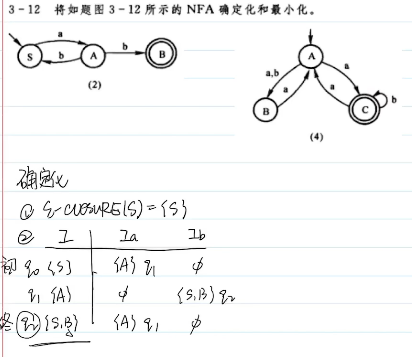 3-12 将如题图 3-12 所示的 NFA 确定化和最小化。
S a b A b B
(2)
A a,b a a a B C b
(4)
确定化
① ε-CLOSURE(S)={S}
② I Ia Ib
初 q₀ {S} {A} q₁ ϕ
q₁ {A} ϕ {S,B} q₂
终 q₂ {S,B} {A} q₁ ϕ